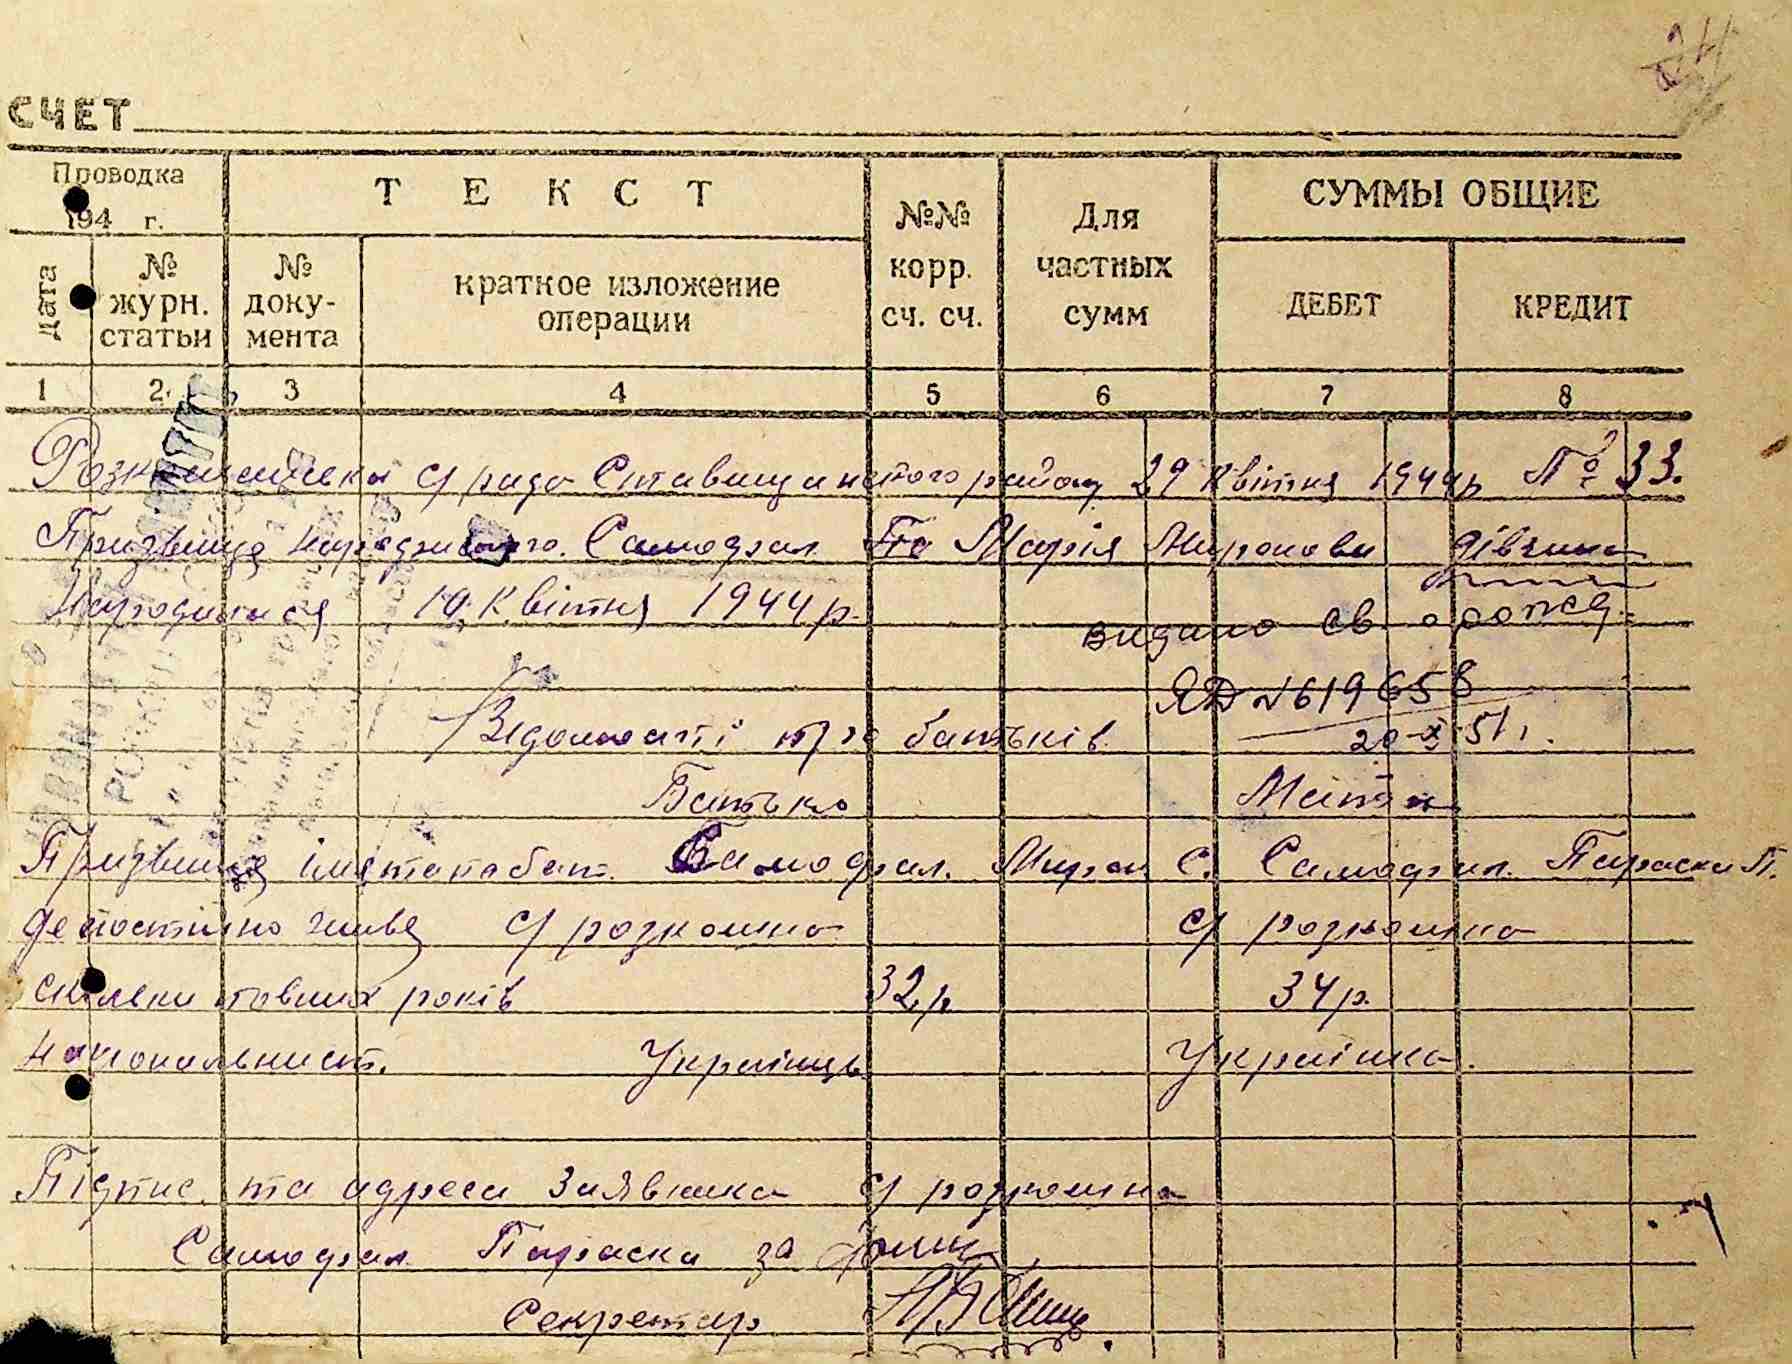 СЧЕТ
Проводка
194 г.
ТЕКСТ
№№ корр. сч. сч.
Для частных сумм
СУММЫ ОБЩИЕ
дата
№ журн. статьи
№ доку-мента
краткое изложение операции
ДЕБЕТ
КРЕДИТ
1 2 3 4 5 6 7 8
с/рада Ставищанського району 29 Квітня 1944р № 33.
Призвище народживого. Самофал Марія Миронови дівчина
Народилася 10 Квітня 1944 р.
видано св о рожд.
ЯД №619658
Відомости про батьків
20-X-51г.
Батько Мати
Призвище імя та побат. Самофал. Мирон С. Самофал. Параска П.
де постійно живе с/ розкошна с/ розкошна
скильки повних років 32 р 34 р.
національнист. Українць Українка.
Підпис та адреса заявника с/ розкошна
Самофал Параска за
Секретар